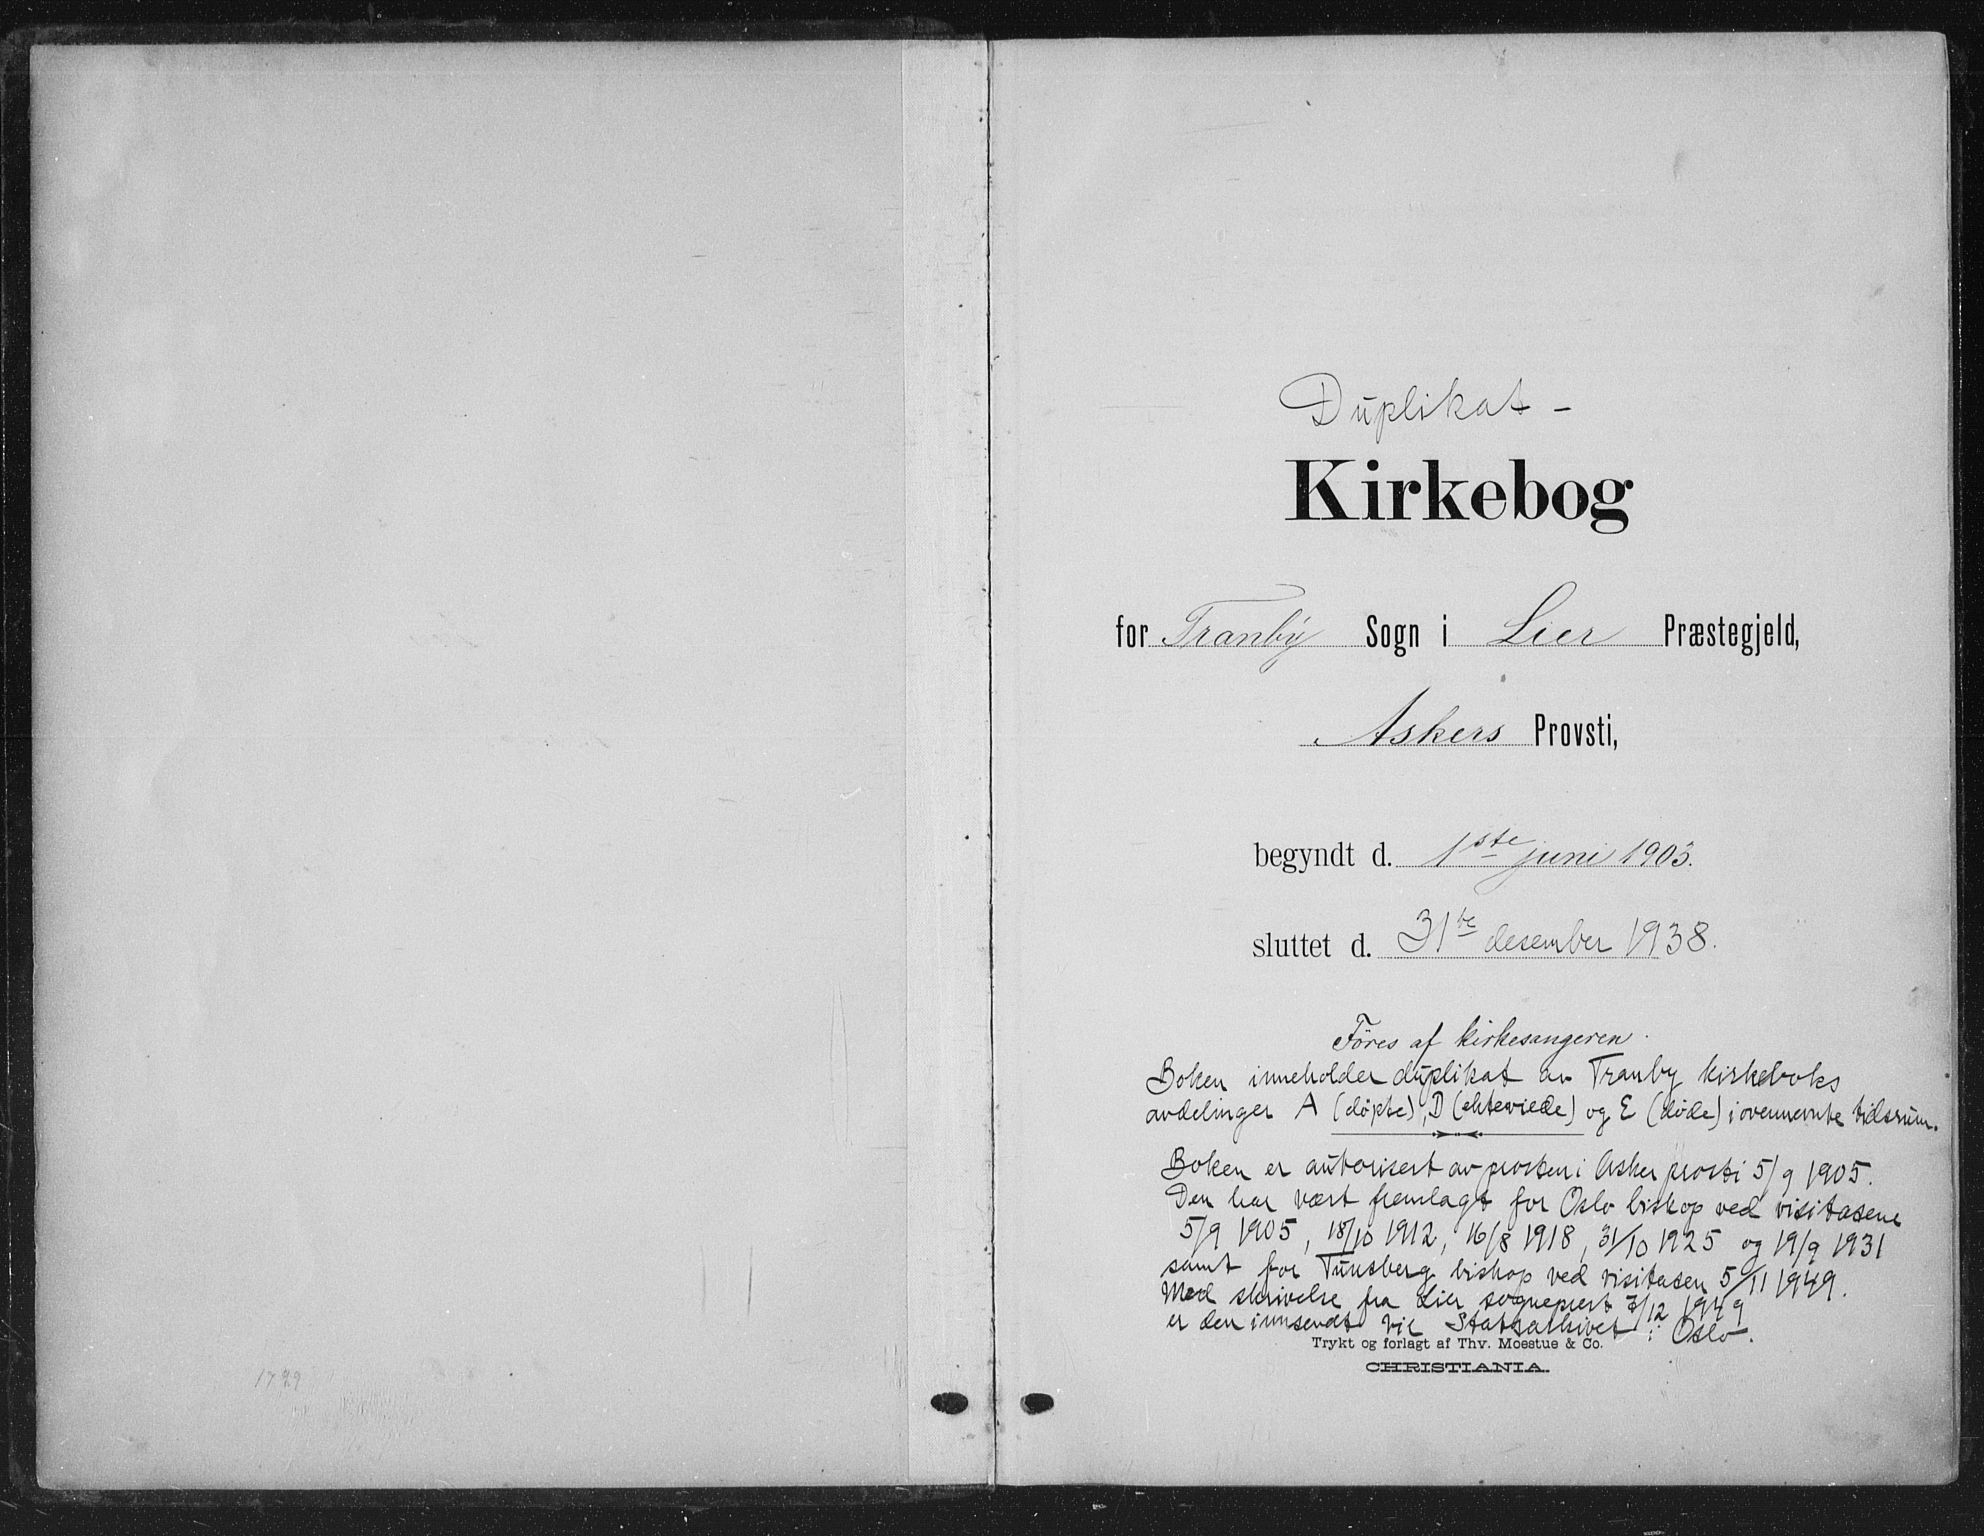 Duplikat -
Kirkebog
for Tranby Sogn i Lier Præstegjeld,
Askers Provsti,
begyndt d. 1ste juni 1903.
sluttet d. 31te desember 1938.
Føres af kirkesangeren.
Boken inneholder duplikat av Tranby kirkeboks
avdelinger A (døpte), D (ekteviede) og E (døde) i ovennevnte tidsrum.
Boken er autorisert av prosten i Asker prosti 5/9 1905.
Den har vært fremlagt for Oslo biskop ved visitasene
5/9 1905, 18/10 1912, 16/8 1918, 31/10 1925 og 19/9 1931
samt for Tunsberg biskop ved visitasen 5/11 1949.
Med skrivelse fra Lier sogneprest 7/12 1949
er den innsendt til Statsarkivet i Oslo.
Trykt og forlagt af Thv. Moestue & Co.
CHRISTIANIA.
1729